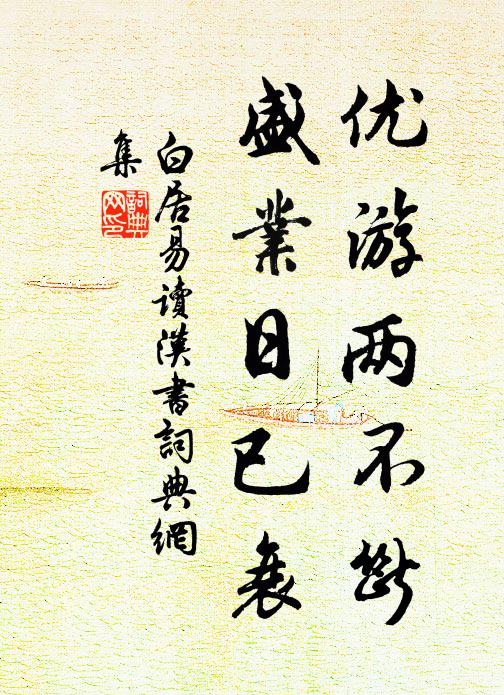 优游两不断
盛業日已衰
白居易讀漢書詞典網
集
詞典網印